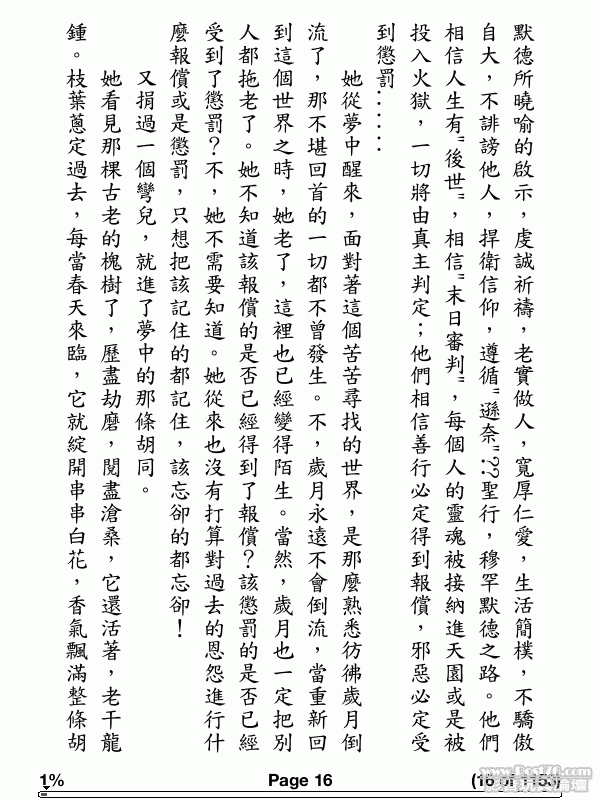 默德所曉喻的啟示，虔誠祈禱，老實做人，寬厚仁愛，生活簡樸，不驕傲
自大，不誹謗他人，捍衛信仰，遵循"遜奈"??聖行，穆罕默德之路。他們
相信人生有"後世"，相信"末日審判"，每個人的靈魂被接納進天園或是被
投入火獄，一切將由真主判定；他們相信善行必定得到報償，邪惡必定受
到懲罰.....
她從夢中醒來，面對著這個苦苦尋找的世界，是那麼熟悉彷彿歲月倒
流了，那不堪回首的一切都不曾發生。不，歲月永遠不會倒流，當重新回
到這個世界之時，她老了，這裡也已經變得陌生。當然，歲月也一定把別
人都拖老了。她不知道該報償的是否已經得到了報償？該懲罰的是否已經
受到了懲罰？不，她不需要知道。她從來也沒有打算對過去的恩怨進行什
麼報償或是懲罰，只想把該記住的都記住，該忘卻的都忘卻！
又捐過一個彎兒，就進了夢中的那條胡同。
她看見那棵古老的槐樹了，歷盡劫磨，閱盡滄桑，它還活著，老干龍
鍾。枝葉蔥定過去，每當春天來臨，它就綻開串串白花，香氣飄滿整條胡
1%
Page 16
(16 of 1153)